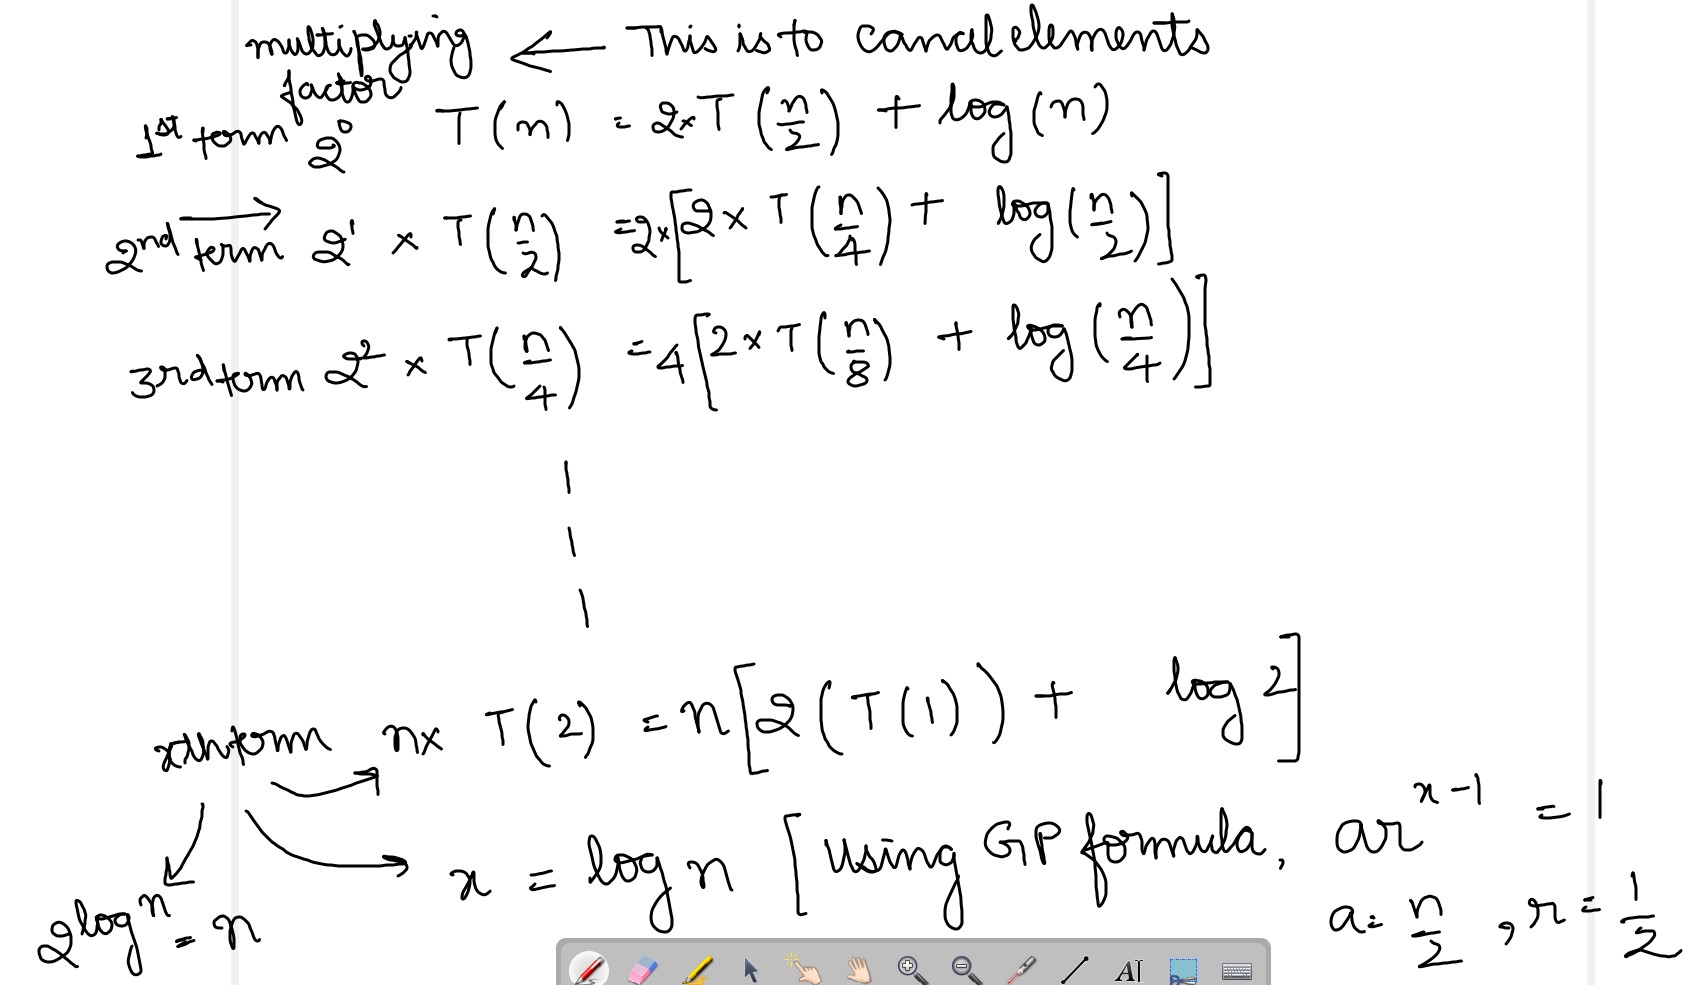 multiplying factor ← This is to cancel elements
1st term 2⁰ T(n) = 2×T(n/2) + log(n)
2nd term 2¹ × T(n/2) =2×[2× T(n/4) + log(n/2)]
3rd term 2² × T(n/4) =4[2×T(n/8) + log(n/4)]
xth term n× T(2) = n[2(T(1)) + log 2]
x = log n [using GP formula, ar^(x-1) = 1
2^log n = n
a= n/2 , r = 1/2
AI